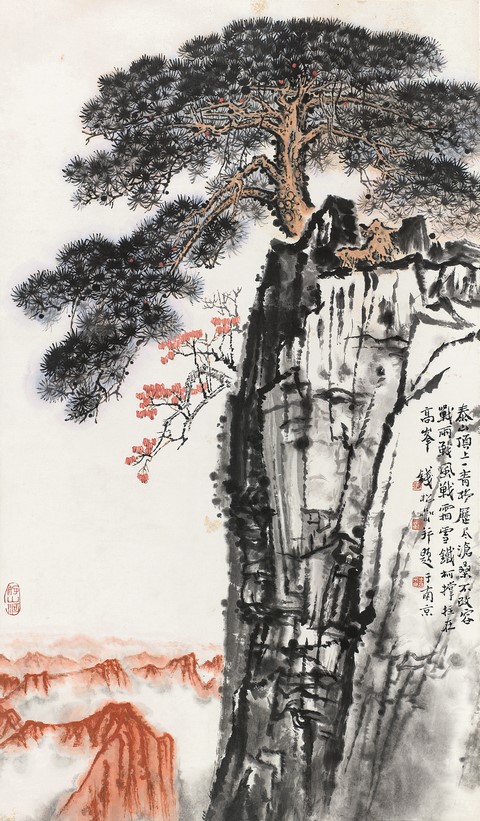 泰山頂上一青松歷尽滄桑不改容
戰雨戰風戰霜雪鐵柯撑柱在
高峯 錢松喦并題于南京